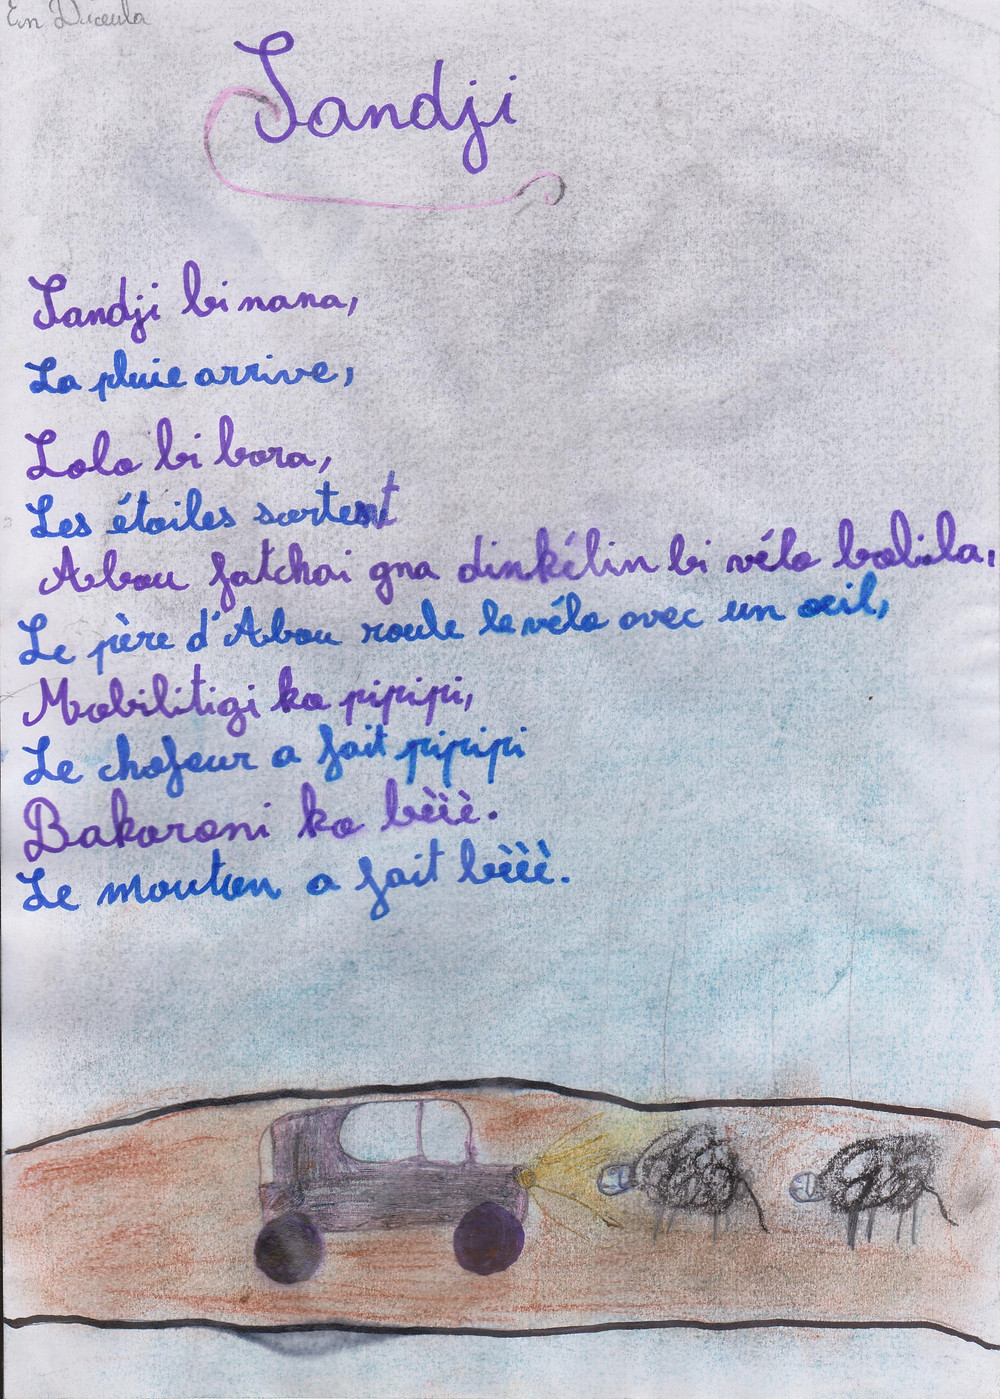 En Dioula
Sandji
Sandji bi nana,
La pluie arrive,
Lolo bi bora,
Les étoiles sortent
Abou fatchai gna dinkélin bi vélo bolila,
Le père d'Abou roule le vélo avec un oeil,
Mobilitigi ko pipipi,
Le chofeur a fait pipipi
Bakoroni ko bèèè.
Le mouton a fait bèèè.